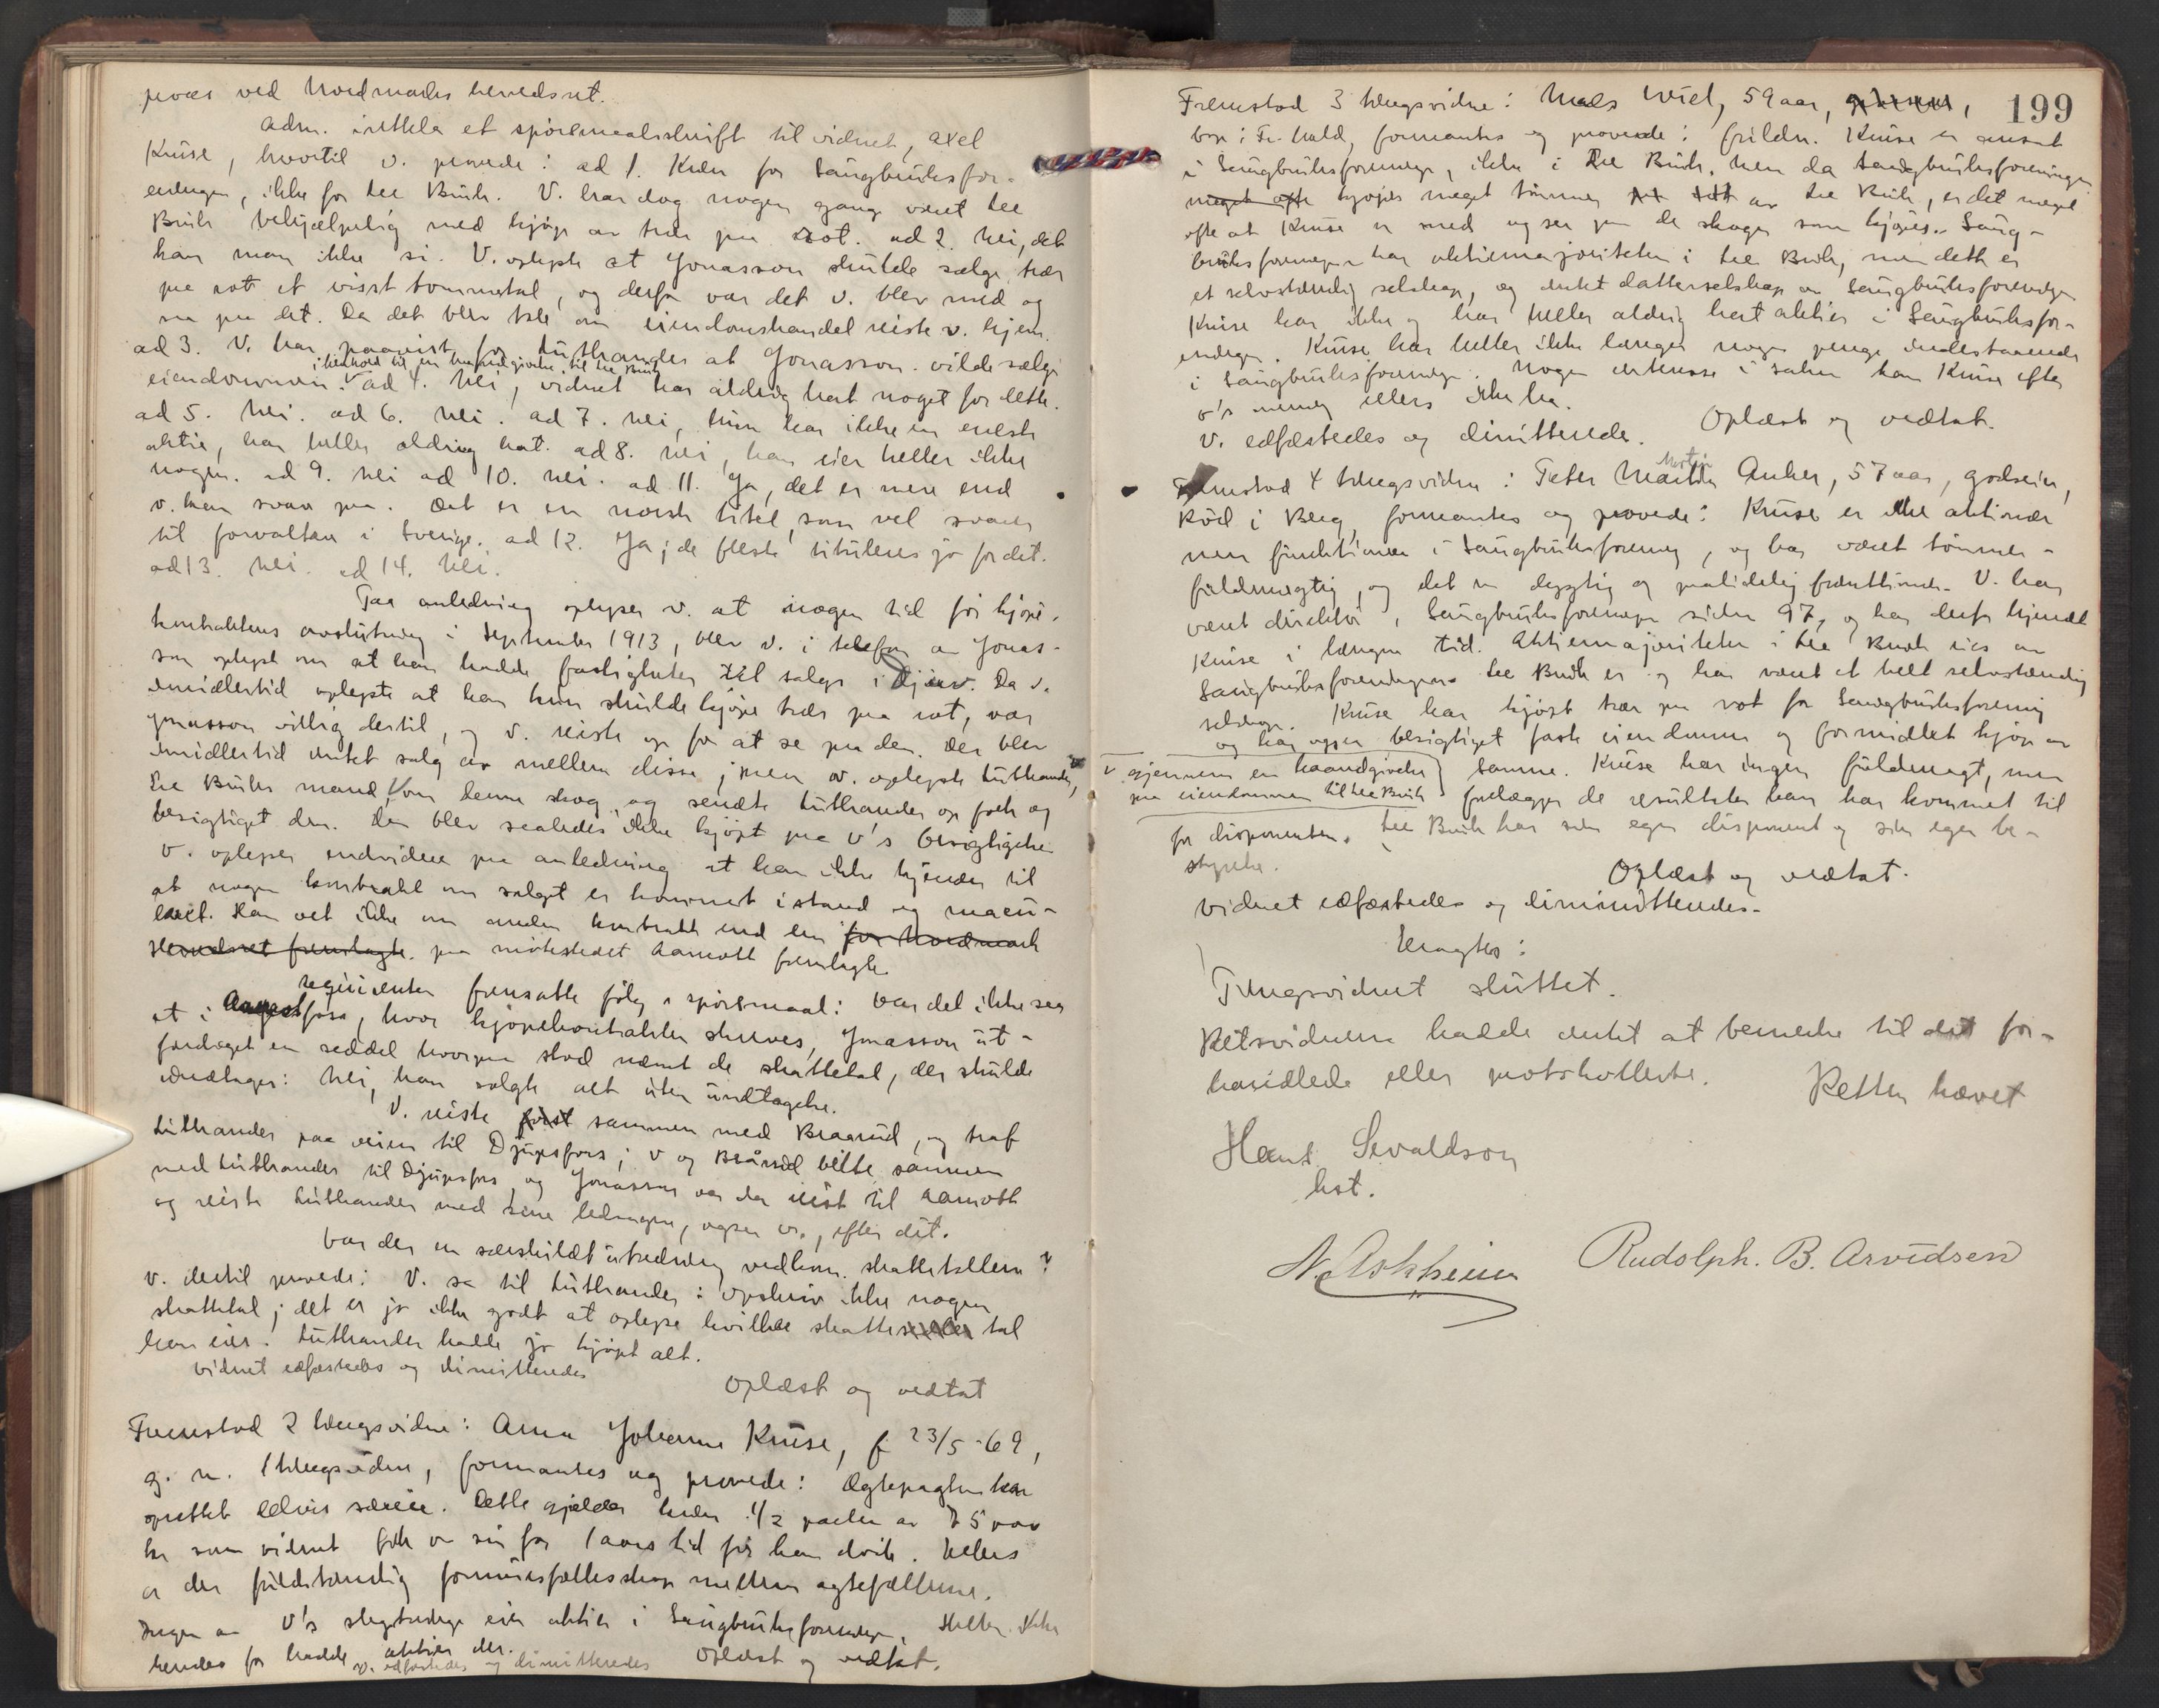 ved Nordmarks heredsret.
Adm. irettela et spörsmaalsskrift til vidnet, Axel
Kruse, hvortil v. provede: ad 1. Kun for Saugbruksfor-
eningen, ikke for Lee Bruk. V. har dog nogen gang været Lee
Bruk behjælpelig med kjøp av trær paa rot. ad 2. Nei, det
kan man ikke si. V. oplyste at Jonasson skulde sælge trær
paa rot et visst tommetal, og derfor var det v. blev med og
saa paa det. Da det blev tale om eiendomshandel reiste v. hjem.
ad 3. V. har paavist for Luthander at Jonasson vilde sælge
i henhold til en haandgivelse til Lee Bruk
eiendommen. ad 4. Nei, vidnet har aldrig hørt noget for dette.
ad 5. Nei. ad 6. Nei. ad 7. Nei, hun har ikke en eneste
aktie, har heller aldrig hat. ad 8. Nei, han eier heller ikke
nogen. ad 9. Nei ad 10. Nei. ad 11. Ja, det er mere end
v. kan svare paa. Det er en norsk titel, som vel svarer
til forvaltare i Sverige. ad 12. Ja; de fleste tituleres jo for det.
ad 13. Nei. ad 14. Nei.
Paa anledning oplyser v. at nogen tid før kjøpe-
kontraktens avslutning i September 1913, blev v. i telefon av Jonas-
son oplyst om at han hadde fastigheter til salgs i Da v.
imidlertid oplyste at han kun skulde kjøpe trær paa rot, var
Jonasson villig dertil, og v. reiste op for at se paa den. Der blev
imidlertid intet salg av mellem disse; men v. oplyste Luthander,
Lee Bruks mand, om denne skog, og sendte Luthander op folk og
besigtiget den. Den blev saaledes ikke kjøpt paa v's besigtigelse
V. oplyser endvidere paa anledning at han ikke kjender til
at nogen kontrakt om salget er kommet istand og
Han vet ikke om anden kontrakt end den for Nordmark
Heredsret fremlagte. paa mötestedet Aamott fremlagte
Reqvirenten fremsatte följ. spörsmaal: Var det ikke saa
at i hvor kjöpekontrakten skreves, Jonasson ut-
fordraget en seddel hvorpaa stod nævnt de skattetal, der skulde
undtages: Nei, han solgte alt uten undtagelse.
V. reiste först sammen med Braarud, og traf
Luthander paa veien til Djupsfors; v og Braarud bilte sammen
med Luthander til Djupsfors, og Jonasson var da reist til Aamott
og reiste Luthander med sine ledsagere, ogsaa v., efter dit.
Var der en særskildt utredning vedkom. skattetallene?
V. dertil provede: V. sa til Luthander: opskriv ikke nogen
skattetal; det er jo ikke godt at oplyse hvilke skatte tal
han eier. Luthander hadde jo kjøpt alt.
Vidnet edfæstedes og dimitteredes
Oplæst og vedtat
Fremstod 2 tingsvidne: Anna Johanne Kruse, f 23/5-69,
g. m. 1 tingsvidne, formantes og provede: Ægtepagten har
oprettet delvis særeie. Dette gjælder kun 1/2 parten av 75000
kr som vidnet fik av sin far 1 aars tid før han døde. Ellers
er der fuldstændig formuesfællesskap mellem ægtefællerne.
Ingen av V's slegtninge eier aktier i Saugbruksforeningen. Heller ikke
hendes far hadde aktier der.
v. edfæstedes og dimitteredes Oplæst og vedtat.
199
Fremstod 3 tingsvidne: Mads Wiel, 59 aar,
bop. i Fr.hald, formantes og provede: fuldm. Kruse er ansat
i Saugbruksforeningen, ikke i Lee Bruk. Men da Saugbruksforeningen
meget ofte kjøper meget tømmer av Lee Bruk, er det meget
ofte at Kruse er med og ser paa de skoger som kjøpes. Saug-
bruksforeningen har aktiemajoriteten i Lee Bruk, men dette er
et selvstændig selskap, og intet datterselskap av Saugbruksforeningen
Kruse har ikke og har heller aldrig hat aktier i Saugbruksfor-
eningen. Kruse har heller ikke længer nogen penge indestaaende
i Saugbruksforeningen. Nogen interesse i saken kan Kruse efter
v's mening ellers ikke ha.
V. edfæstedes og dimitterede. Oplæst og vedtat.
Martin
Fremstod 4 tingsvidne: Peter Anker, 57 aar, godseier,
Röd i Berg, formantes og provede: Kruse er ikke aktionær
men funktionær i Saugbruksforening, og har været tømmer-
fuldmægtig, og det en dygtig og paalidelig funktionær. V. har
været direktör i Saugbruksforeningen siden 97, og har derfor kjendt
Kruse i længere tid. Aktiemajoriteten i Lee Bruk eies av
Saugbruksforeningen. Lee Bruk er og har været et helt selvstændig
selskap. Kruse har kjøpt trær paa rot for Saugbruksforening
og har ogsaa besigtiget faste eiendomme og formidlet kjøp av
v gjennem en haandgivelse samme. Kruse har ingen fuldmagt, men
paa eiendommen til Lee Bruk forelægger de resultater han har kommet til
for disponenten. Lee Bruk har sin egen disponent og sin egen be-
styrelse.
Oplæst og vedtat.
Vidnet edfæstedes og dimmitteredes.
Eragtes:
Tingsvidnet sluttet.
Retsvidnene hadde intet at bemerke til det for-
handlede eller protokollerte. Retten hævet
Hans Sevaldson
kst.
N. Askheim Rudolph. B. Arvidsen